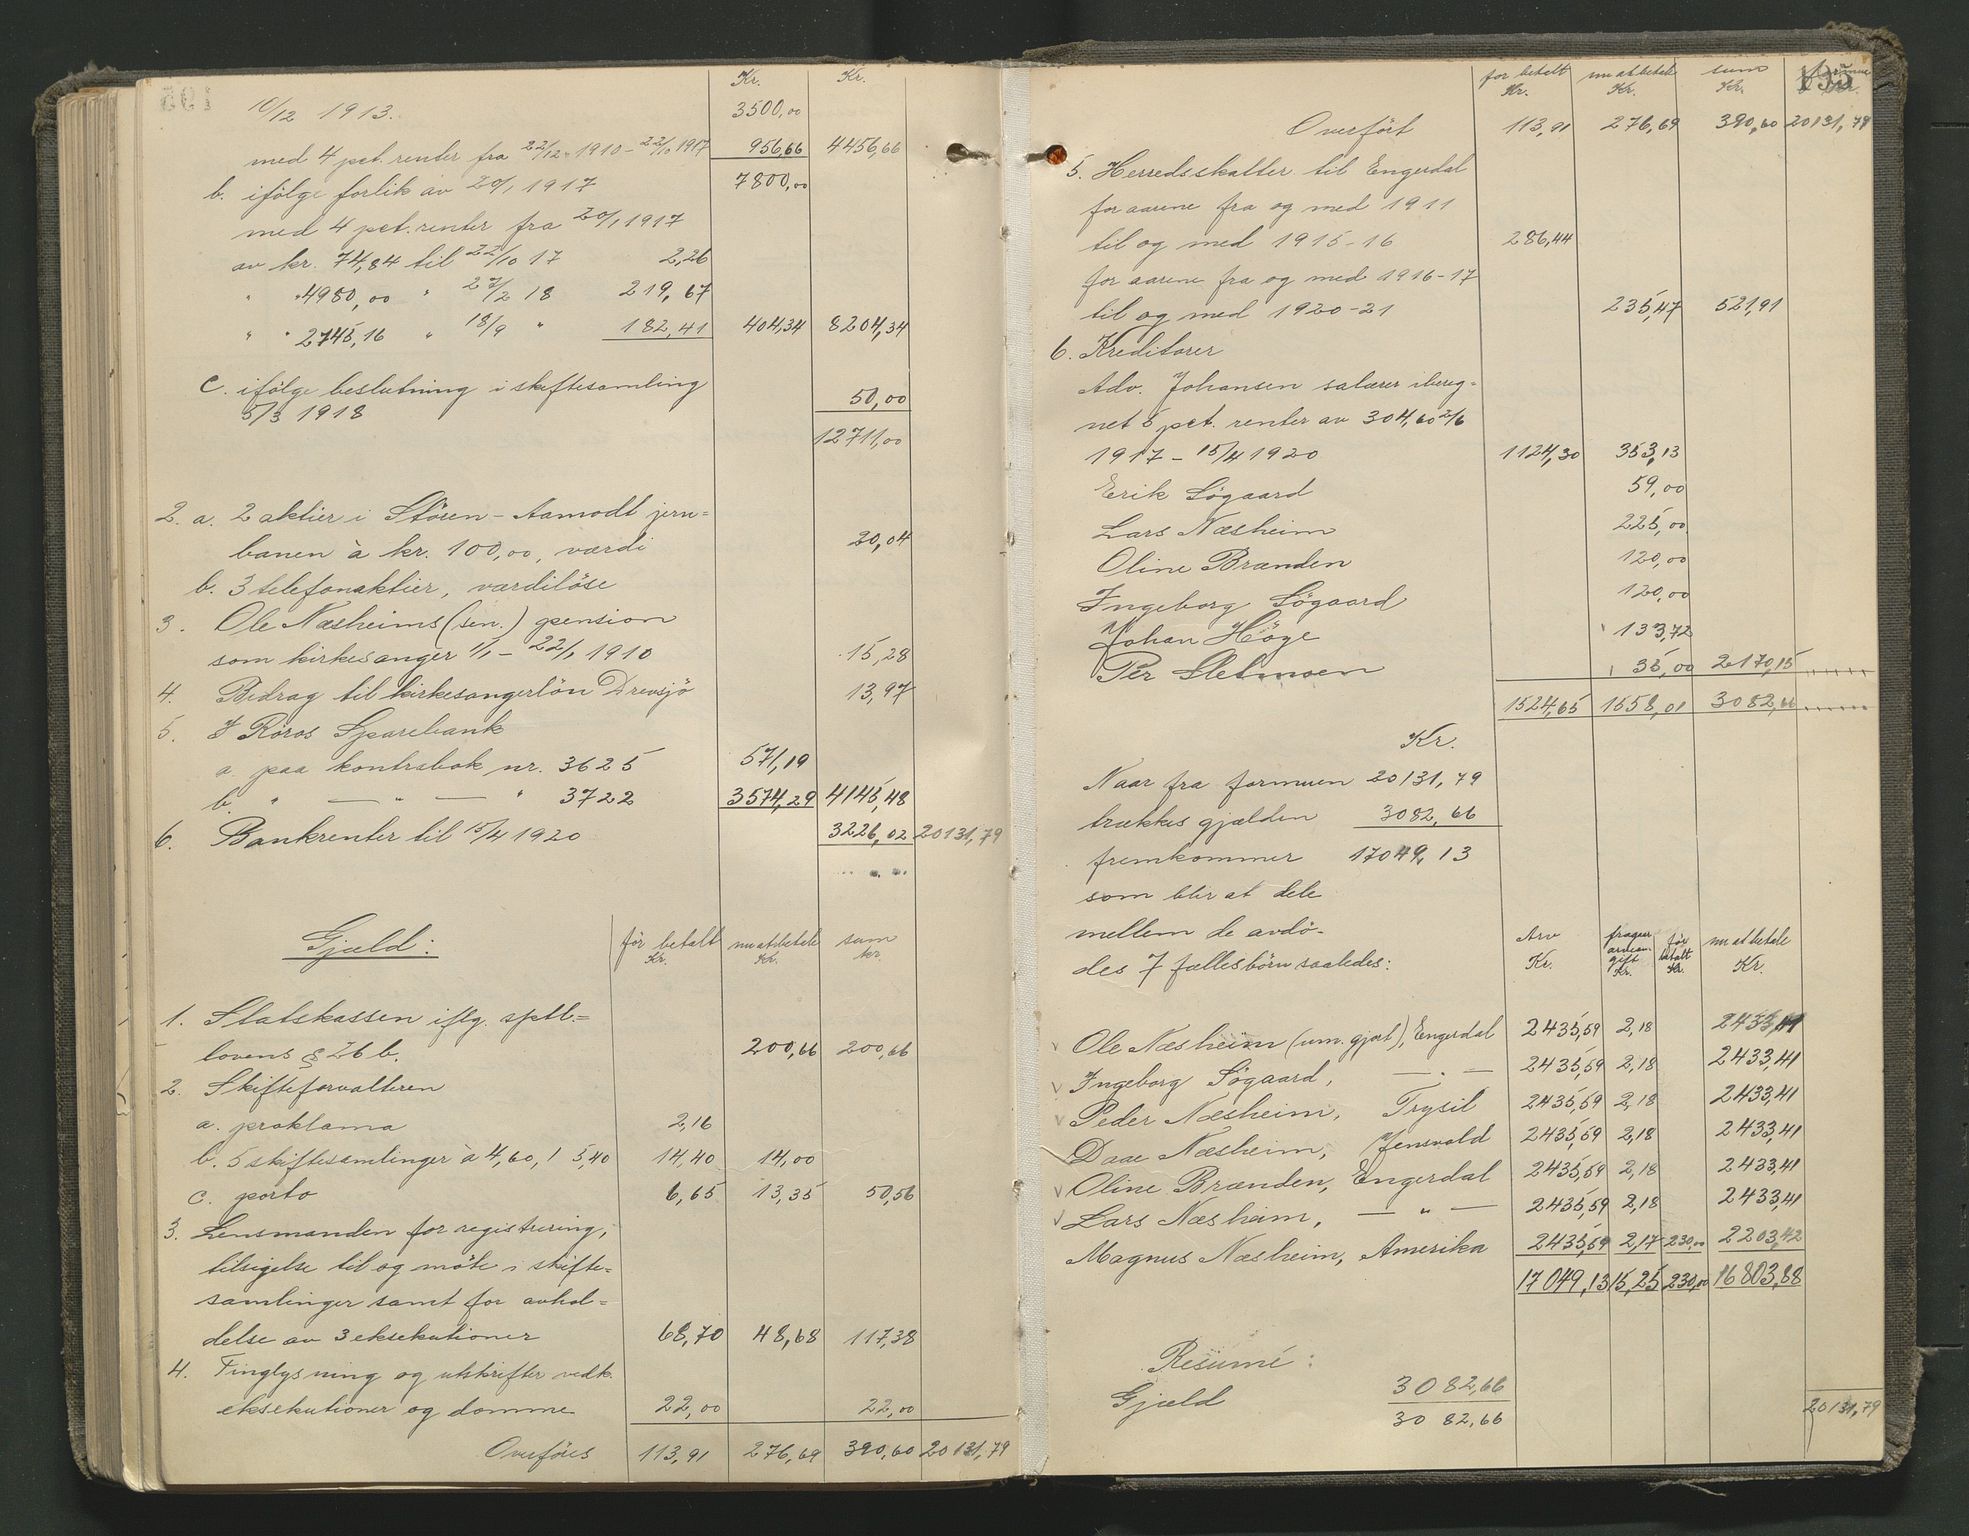 Kr. Kr.
10/12 1913. 3500,00
med 4 pct. renter fra 22/12 1910 - 22/10 1917 956,66 4456,66
b. ifölge forlik av 20/1 1917 7800,00
med 4 pct. renter fra 20/1 1917
av kr. 74,84 til 22/10 17 2,26
" " 4980,00 " 27/2 18 219,67
" " 2745,16 " 18/9 " 182,41 404,34 8204,34
c. ifölge beslutning i skiftesamling 50,00
5/3 1918
12711,00
2. a. 2 aktier i Stören - Aamodt jern=
banen à kr. 100,00, værdi 20,04
b. 3 telefonaktier, værdilöse
3. Ole Næsheims (sen.) pension
som kirkesanger 1/1 - 22/1 1910 15,28
4. Bidrag til kirkesangerlön Drevsjö 13,97
5. I Röros Sparebank
a. paa kontrabok nr. 3625 571,19
b. " — " — " 3722 3574,29 4145,48
6. Bankrenter til 15/4 1920 3226,02 20131,79
Gjæld: för betalt nu at betale sum
Kr. Kr. kr.
1. Statskassen iflg. sptl.=
lovens § 26 b. 200,66 200,66
2. Skifteforvalteren
a. proklama 2,16
b. 5 skiftesamlinger à 4,60, 1 5,40 14,40 14,00
c. porto 6,65 13,35 50,56
3. Lensmanden for registrering,
tilsigelse til og möte i skifte=
samlinger samt for avhol=
delse av 3 eksekutioner 68,70 48,68 117,38
4. Tinglysning og utskrifter vedk.
eksekutioner og domme 22,00 22,00
Overföres 113,91 276,69 390,60 20131,79
195
för betalt nu at betale sum Formue
Kr. Kr. Kr. Kr.
Overfört 113,91 276,69 390,60 20131,79
5. Herredsskatter til Engerdal
for aarene fra og med 1911
til og med 1915-16 286,44
for aarene fra og med 1916-17
til og med 1920-21 235,47 521,91
6. Kreditorer
Adv. Johansen salærer ibereg=
net 5 pct. renter av 304,60 2/6
1917 - 15/4 1920 1124,30 353,13
Erik Sögaard 59,00
Lars Næsheim 225,00
Oline Brænden 120,00
Ingeborg Sögaard 120,00
Johan Höge 133,72
Per Sletmoen 35,00 2170,15
1524,65 1558,01 3082,66
Kr.
Naar fra formuen 20131,79
trækkes gjælden 3082,66
fremkommer 17049,13
som blir at dele
mellem de avdö-
des 7 fællesbörn saaledes:
Arv fragaar arveavgift för betalt nu at betale
Kr. Kr. Kr. Kr.
Ole Næsheim (um. gjort), Engerdal 2435,59 2,18 2433,41
Ingeborg Sögaard, — " — 2435,59 2,18 2433,41
Peder Næsheim, Trysil 2435,59 2,18 2433,41
Daae Næsheim, Jensvold 2435,59 2,18 2433,41
Oline Brænden, Engerdal 2435,59 2,18 2433,41
Lars Næsheim, — " — 2435,59 2,18 2433,41
Magnus Næsheim, Amerika 2435,59 2,17 230,00 2203,42
17049,13 15,25 230,00 16803,88
Resumé:
Gjæld 3082,66
3082,66 20131,79